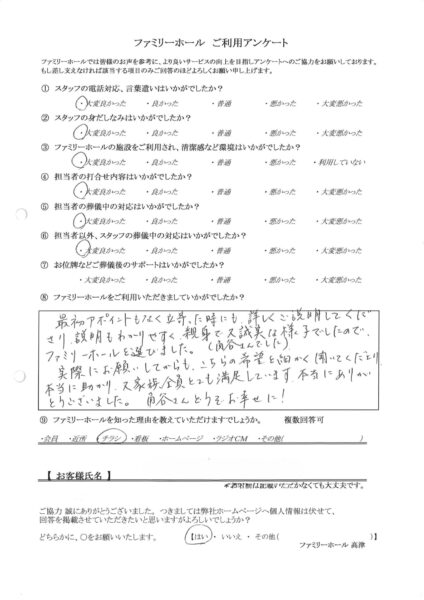 ファミリーホール　ご利用アンケート
ファミリーホールでは皆様のお声を参考に、より良いサービスの向上を目指しアンケートへのご協力をお願いしております。
もし差し支えなければ該当する項目のみご回答のほどよろしくお願い申し上げます。
① スタッフの電話対応、言葉遣いはいかがでしたか?
・大変良かった ・良かった ・普通 ・悪かった ・大変悪かった
② スタッフの身だしなみはいかがでしたか?
・大変良かった ・良かった ・普通 ・悪かった ・大変悪かった
③ ファミリーホールの施設をご利用され、清潔感など環境はいかがでしたか?
・大変良かった ・良かった ・普通 ・悪かった ・利用していない
④ 担当者の打合せ内容はいかがでしたか?
・大変良かった ・良かった ・普通 ・悪かった ・大変悪かった
⑤ 担当者の葬儀中の対応はいかがでしたか?
・大変良かった ・良かった ・普通 ・悪かった ・大変悪かった
⑥ 担当者以外、スタッフの葬儀中の対応はいかがでしたか?
・大変良かった ・良かった ・普通 ・悪かった ・大変悪かった
⑦ お位牌などご葬儀後のサポートはいかがでしたか?
・大変良かった ・良かった ・普通 ・悪かった ・大変悪かった
⑧ ファミリーホールをご利用いただきましていかがでしたか?
最初アポイントもなく立寄った時にも、詳しくご説明してくだ
さり、説明もわかりやすく、親身で又誠実な様子でしたので、
ファミリーホールを選びました。(角谷さんでした)
実際にお願いしてからも、こちらの希望を細かく聞いてくださり
本当に助かり、又家族全員とても満足しています。本当にありが
とうございました。 角谷さんどうぞお幸せに!
⑨ ファミリーホールを知った理由を教えていただけますでしょうか。 複数回答可
・会員 ・近所 ・チラシ ・看板 ・ホームページ ・ラジオCM ・その他( )
【 お客様氏名 】
*お名前は記載いただかなくても大丈夫です。
ご協力 誠にありがとうございました。つきましては弊社ホームページへ個人情報は伏せて、
回答を掲載させていただきたいと思いますがよろしいでしょうか?
どちらかに、○をお願いいたします。 【はい ・ いいえ ・ その他( )】
ファミリーホール 高津